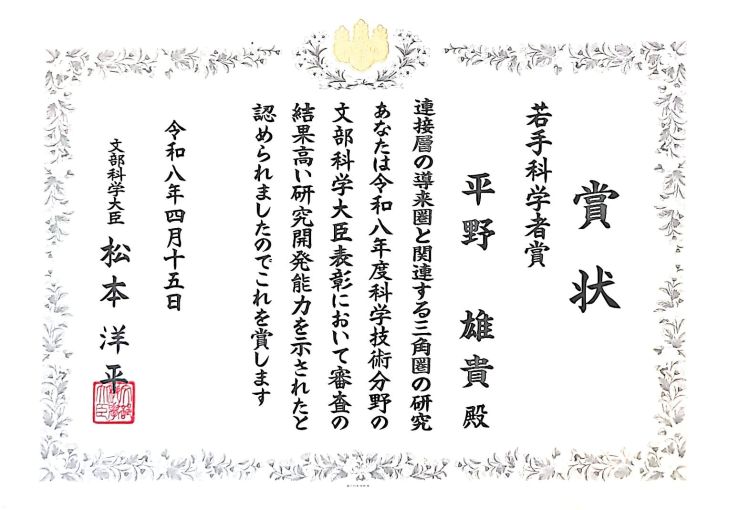 賞状
若手科学者賞
平野 雄貴 殿
連接層の導来圏と関連する三角圏の研究
あなたは令和八年度科学技術分野の
文部科学大臣表彰において審査の
結果高い研究開発能力を示されたと
認められましたのでこれを賞します
令和八年四月十五日
文部科学大臣 松本 洋平